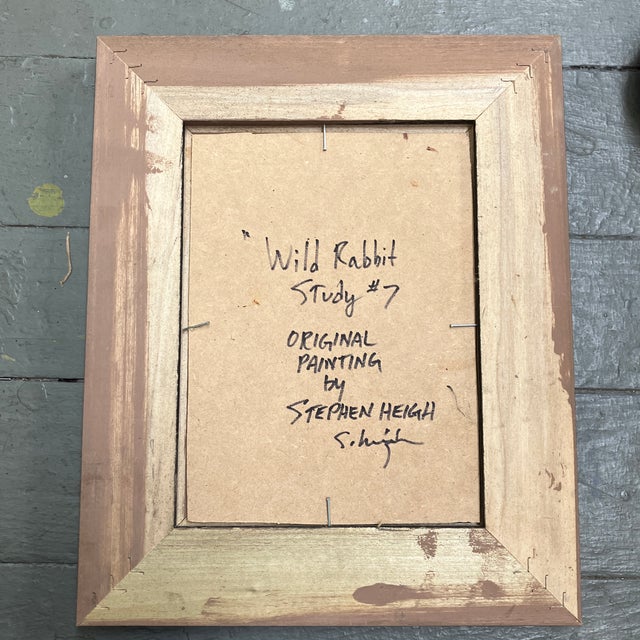 "Wild Rabbit
Study #7
ORIGINAL
PAINTING
by
STEPHEN HEIGH
S. Heigh